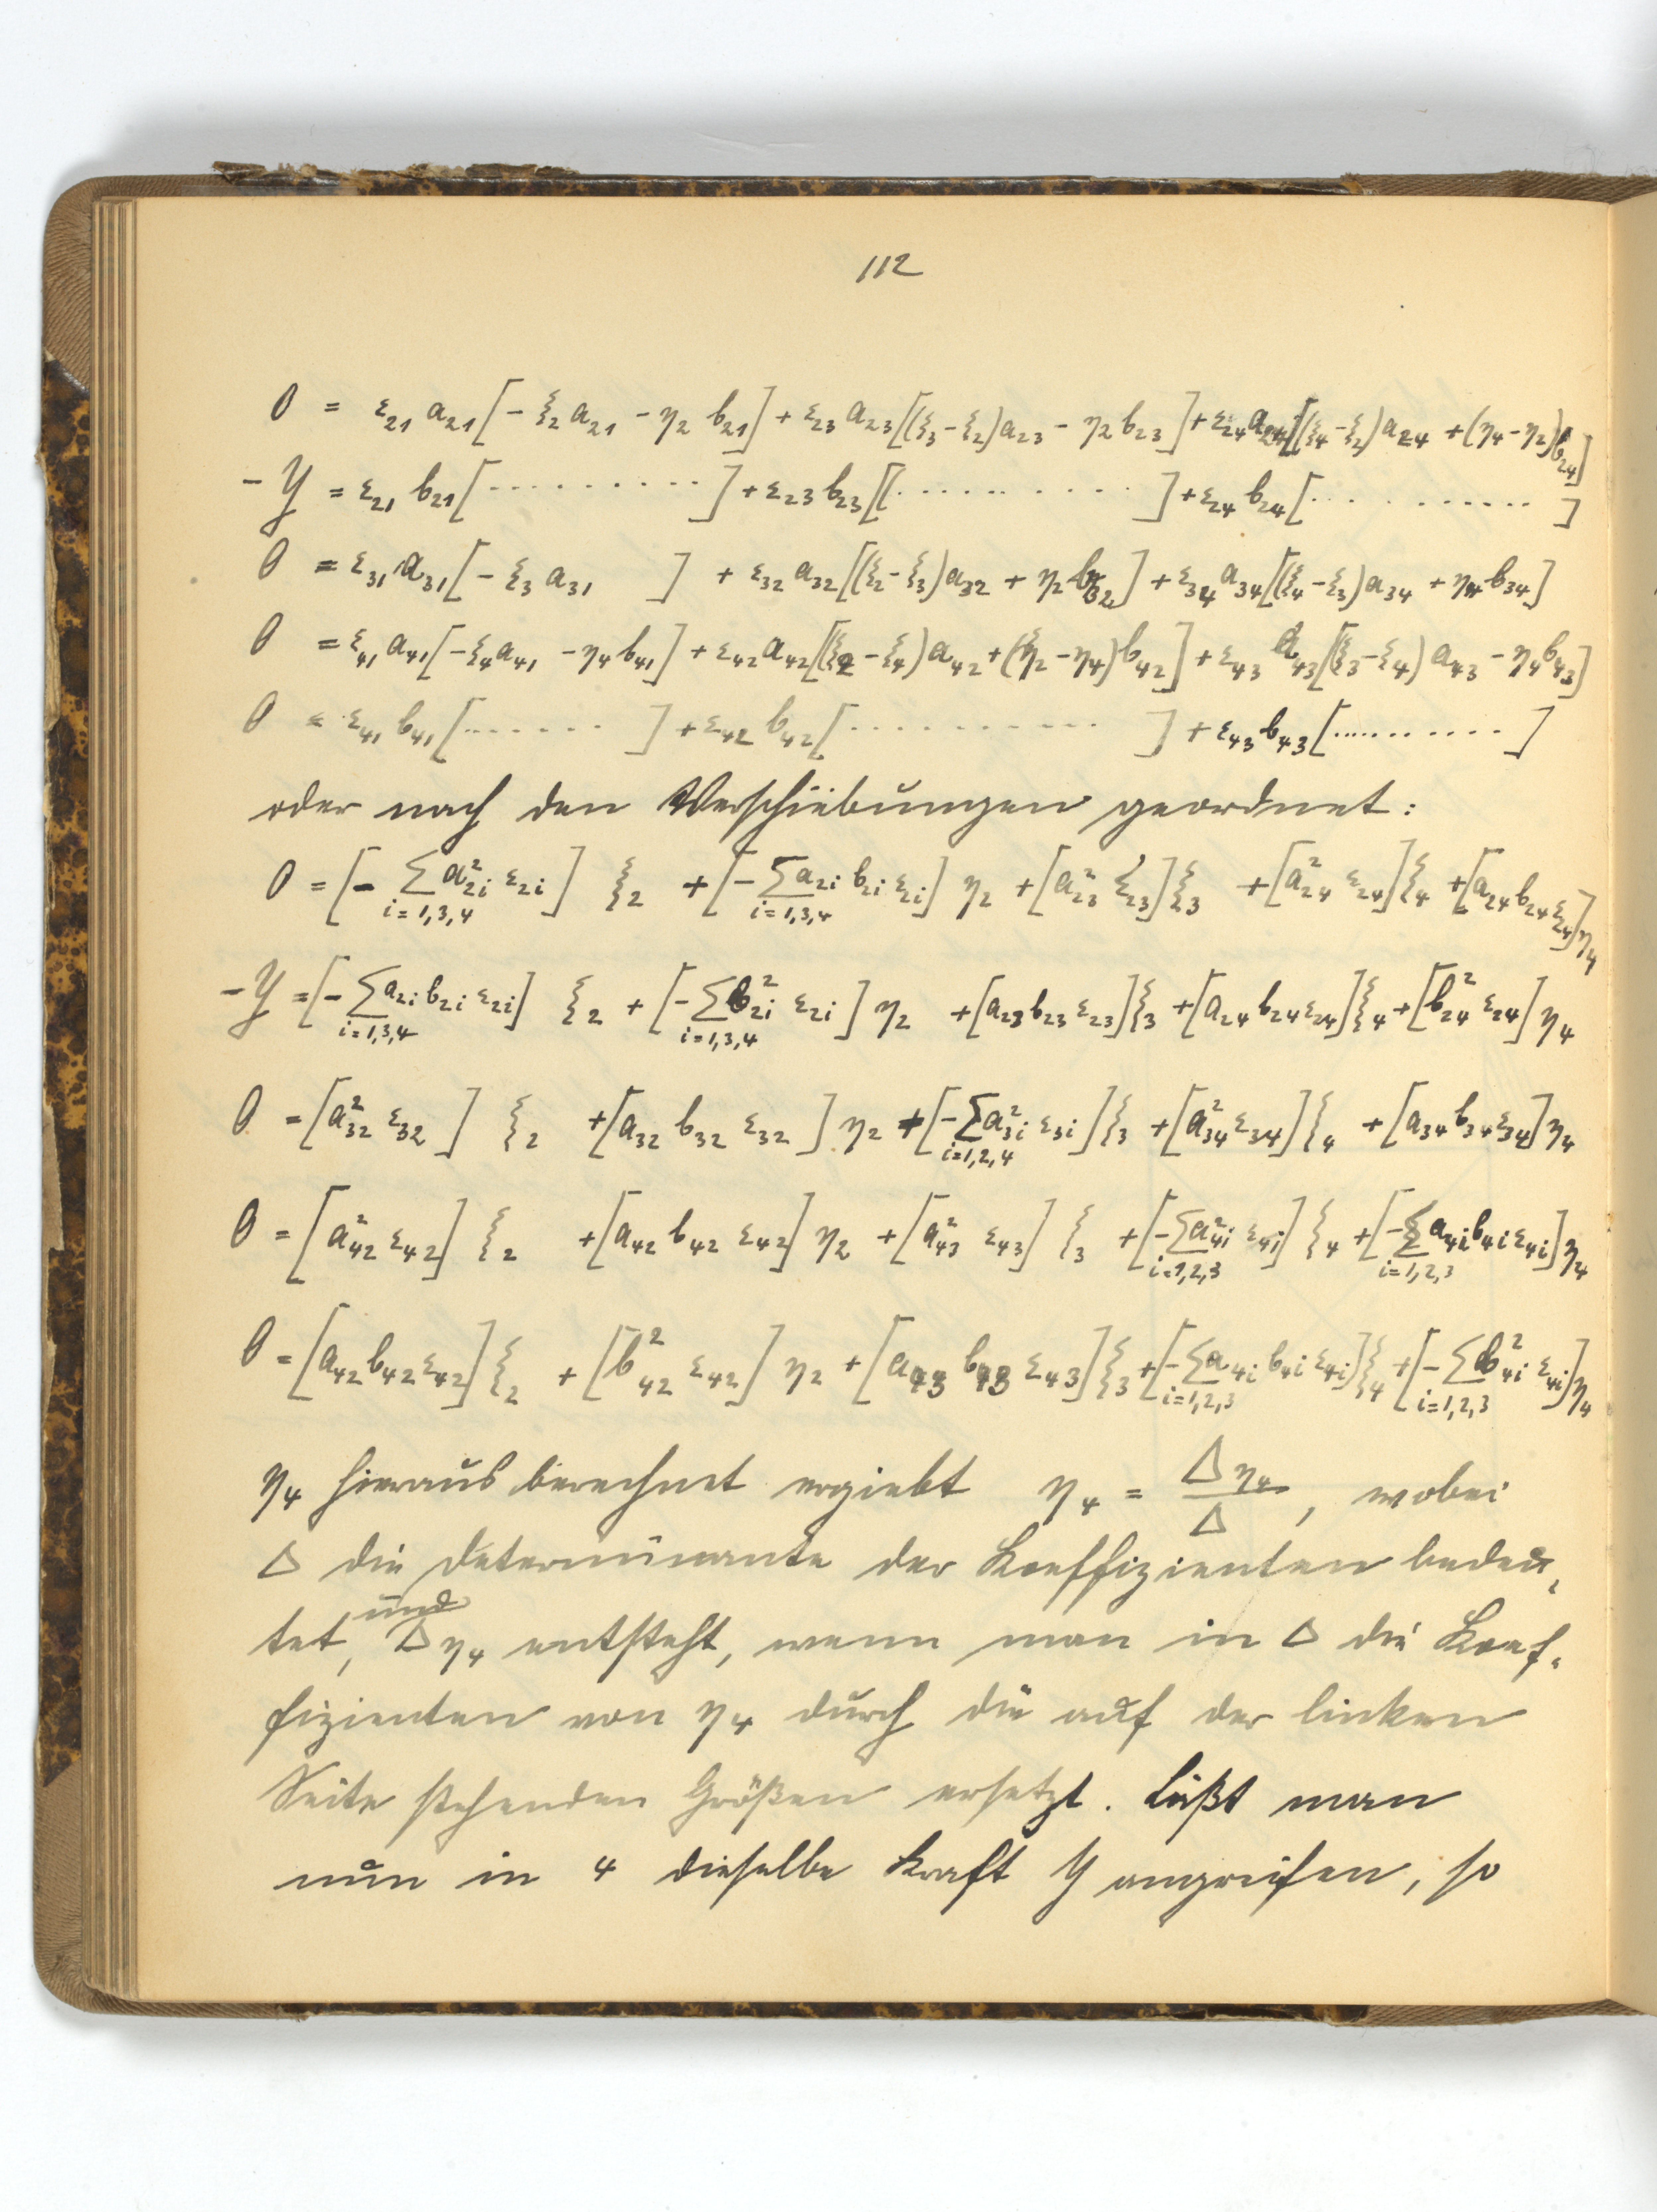 112
0 = ε₂₁ a₂₁ [− ξ₂ a₂₁ − η₂ b₂₁] + ε₂₃ a₂₃ [(ξ₃ − ξ₂) a₂₃ − η₂ b₂₃] + ε₂₄ a₂₄ [(ξ₄ − ξ₂) a₂₄ + (η₄ − η₂) b₂₄]
− Y = ε₂₁ b₂₁ [ · · · · · · · · · · ] + ε₂₃ b₂₃ [[ · · · · · · · · · · ] + ε₂₄ b₂₄ [ · · · · · · · · · · ]
0 = ε₃₁ a₃₁ [− ξ₃ a₃₁ ] + ε₃₂ a₃₂ [(ξ₂ − ξ₃) a₃₂ + η₂ b₃₂] + ε₃₄ a₃₄ [(ξ₄ − ξ₃) a₃₄ + η₄ b₃₄]
0 = ε₄₁ a₄₁ [− ξ₄ a₄₁ − η₄ b₄₁] + ε₄₂ a₄₂ [(ξ₂ − ξ₄) a₄₂ + (η₂ − η₄) b₄₂] + ε₄₃ a₄₃ [(ξ₃ − ξ₄) a₄₃ − η₄ b₄₃]
0 = ε₄₁ b₄₁ [ · · · · · · · ] + ε₄₂ b₄₂ [ · · · · · · · · · · ] + ε₄₃ b₄₃ [ · · · · · · · · · · ]
oder nach den Verschiebungen geordnet:
0 = [− ∑ a²₂ᵢ ε₂ᵢ] ξ₂ + [− ∑ a₂ᵢ b₂ᵢ ε₂ᵢ] η₂ + [a²₂₃ ε₂₃] ξ₃ + [a²₂₄ ε₂₄] ξ₄ + [a₂₄ b₂₄ ε₂₄] η₄
i = 1,3,4 i = 1,3,4
− Y = [− ∑ a₂ᵢ b₂ᵢ ε₂ᵢ] ξ₂ + [− ∑ b²₂ᵢ ε₂ᵢ] η₂ + [a₂₃ b₂₃ ε₂₃] ξ₃ + [a₂₄ b₂₄ ε₂₄] ξ₄ + [b²₂₄ ε₂₄] η₄
i = 1,3,4 i = 1,3,4
0 = [a²₃₂ ε₃₂] ξ₂ + [a₃₂ b₃₂ ε₃₂] η₂ + [− ∑ a²₃ᵢ ε₃ᵢ] ξ₃ + [a²₃₄ ε₃₄] ξ₄ + [a₃₄ b₃₄ ε₃₄] η₄
i = 1,2,4
0 = [a²₄₂ ε₄₂] ξ₂ + [a₄₂ b₄₂ ε₄₂] η₂ + [a²₄₃ ε₄₃] ξ₃ + [− ∑ a²₄ᵢ ε₄ᵢ] ξ₄ + [− ∑ a₄ᵢ b₄ᵢ ε₄ᵢ] η₄
i = 1,2,3 i = 1,2,3
0 = [a₄₂ b₄₂ ε₄₂] ξ₂ + [b²₄₂ ε₄₂] η₂ + [a₄₃ b₄₃ ε₄₃] ξ₃ + [− ∑ a₄ᵢ b₄ᵢ ε₄ᵢ] ξ₄ + [− ∑ b²₄ᵢ ε₄ᵢ] η₄
i = 1,2,3 i = 1,2,3
η₄ hieraus berechnet ergiebt η₄ = Δη₄ / Δ, wobei
Δ die Determinante der Koeffizienten bedeu-
tet, und Δη₄ entsteht, wenn man in Δ die Koef-
fizienten von η₄ durch die auf der linken
Seite stehenden Größen ersetzt. Läßt man
nun in 4 dieselbe Kraft Y angreifen, so